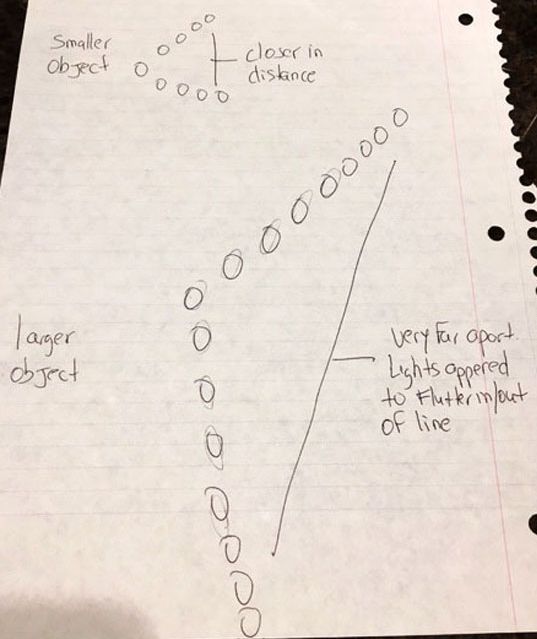 Smaller
object
closer in
distance
larger
object
Very Far apart.
Lights appered
to Flutter in/out
of line